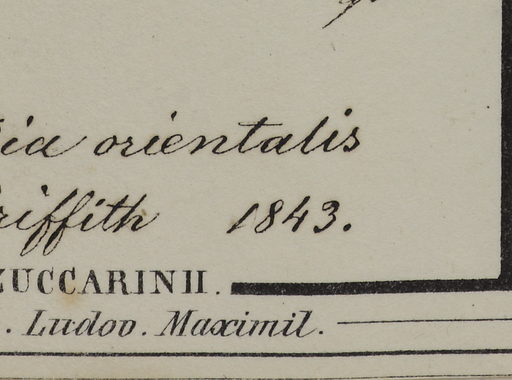 dia orientalis
riffith 1843.
ZUCCARINII.
. Ludov. Maximil.